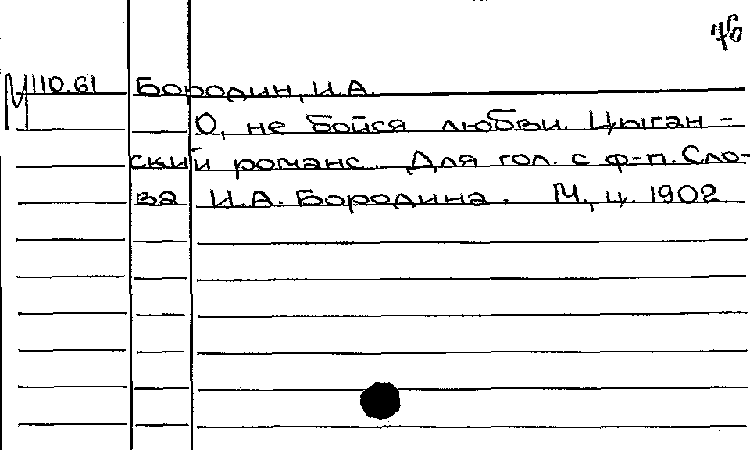 76
М110.61 Бородин, И.А.
О, не бойся любви. Цыган-
ский романс. Для гол. с ф-п. Сло-
ва И.А. Бородина. М., ц. 1902